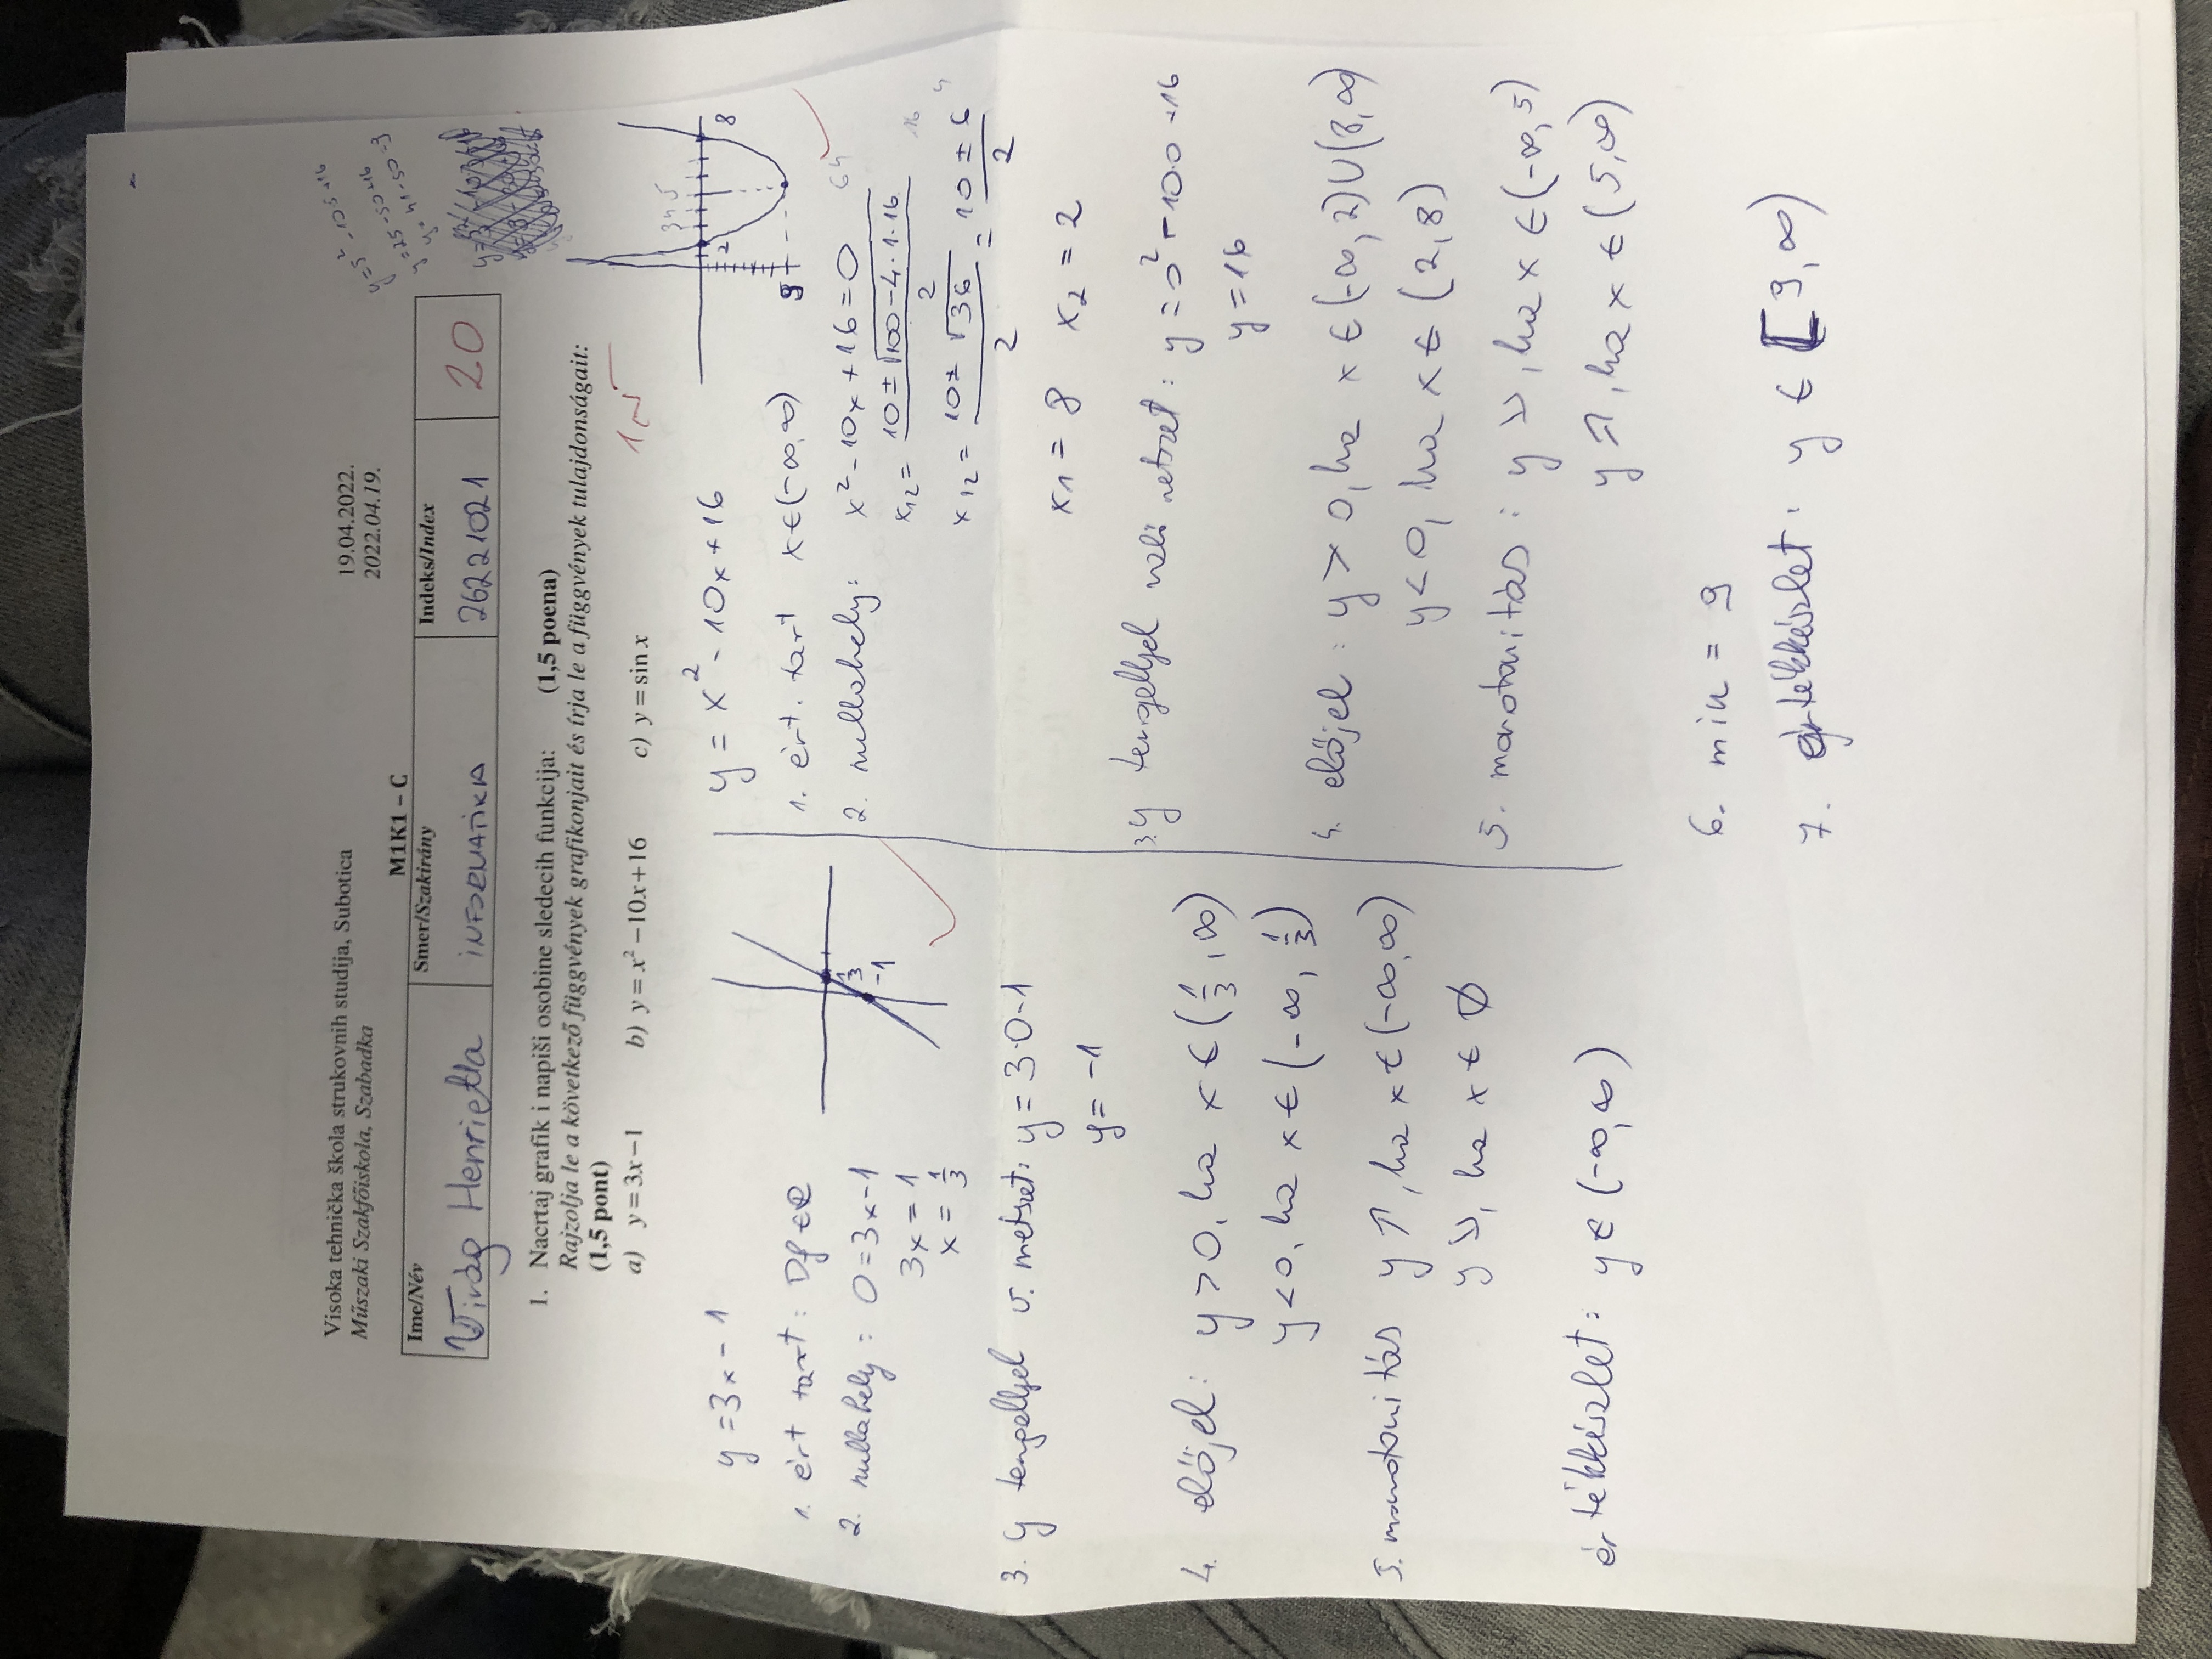 Visoka tehnička škola strukovnih studija, Subotica
Műszaki Szakfőiskola, Szabadka
19.04.2022.
2022.04.19.
M1K1 – C
Ime/Név Smer/Szakirány Indeks/Index
Virág Henrietta INFORMATIKA 26221021 20
y=5²-10·5+16
y=25-50+16
y=41-50=9
1. Nacrtaj grafik i napiši osobine sledecih funkcija: (1,5 poena)
Rajzolja le a következő függvények grafikonjait és írja le a függvények tulajdonságait:
(1,5 pont)
a) y=3x−1 b) y=x²−10x+16 c) y=sin x
y=3x-1
1/3
-1
1. ért tart: Df∈R
2. nullahely: 0=3x-1
3x=1
x=1/3
3. y tengellyel v. metszet: y=3·0-1
y=-1
4. előjel: y>0, ha x∈(1/3,∞)
y<0, ha x∈(-∞,1/3)
5. monotonitás y↗, ha x∈(-∞,∞)
y↘, ha x∈∅
értékkészlet: y∈(-∞,∞)
y=x²-10x+16
3 4 5
2 8
9
1. ért. tart x∈(-∞,∞)
2. nullahely: x²-10x+16=0
64
x12=(10±√100-4·1·16)/2
16
4
x12=(10±√36)/2=(10±6)/2
x1=8 x2=2
3. y tengellyel való metszet: y=0²-10·0+16
y=16
4. előjel: y>0, ha x∈(-∞,2)∪(8,∞)
y<0, ha x∈(2,8)
5. monotonitás: y↘, ha x∈(-∞,5)
y↗, ha x∈(5,∞)
6. min = 9
7. értékkészlet: y∈[9,∞)